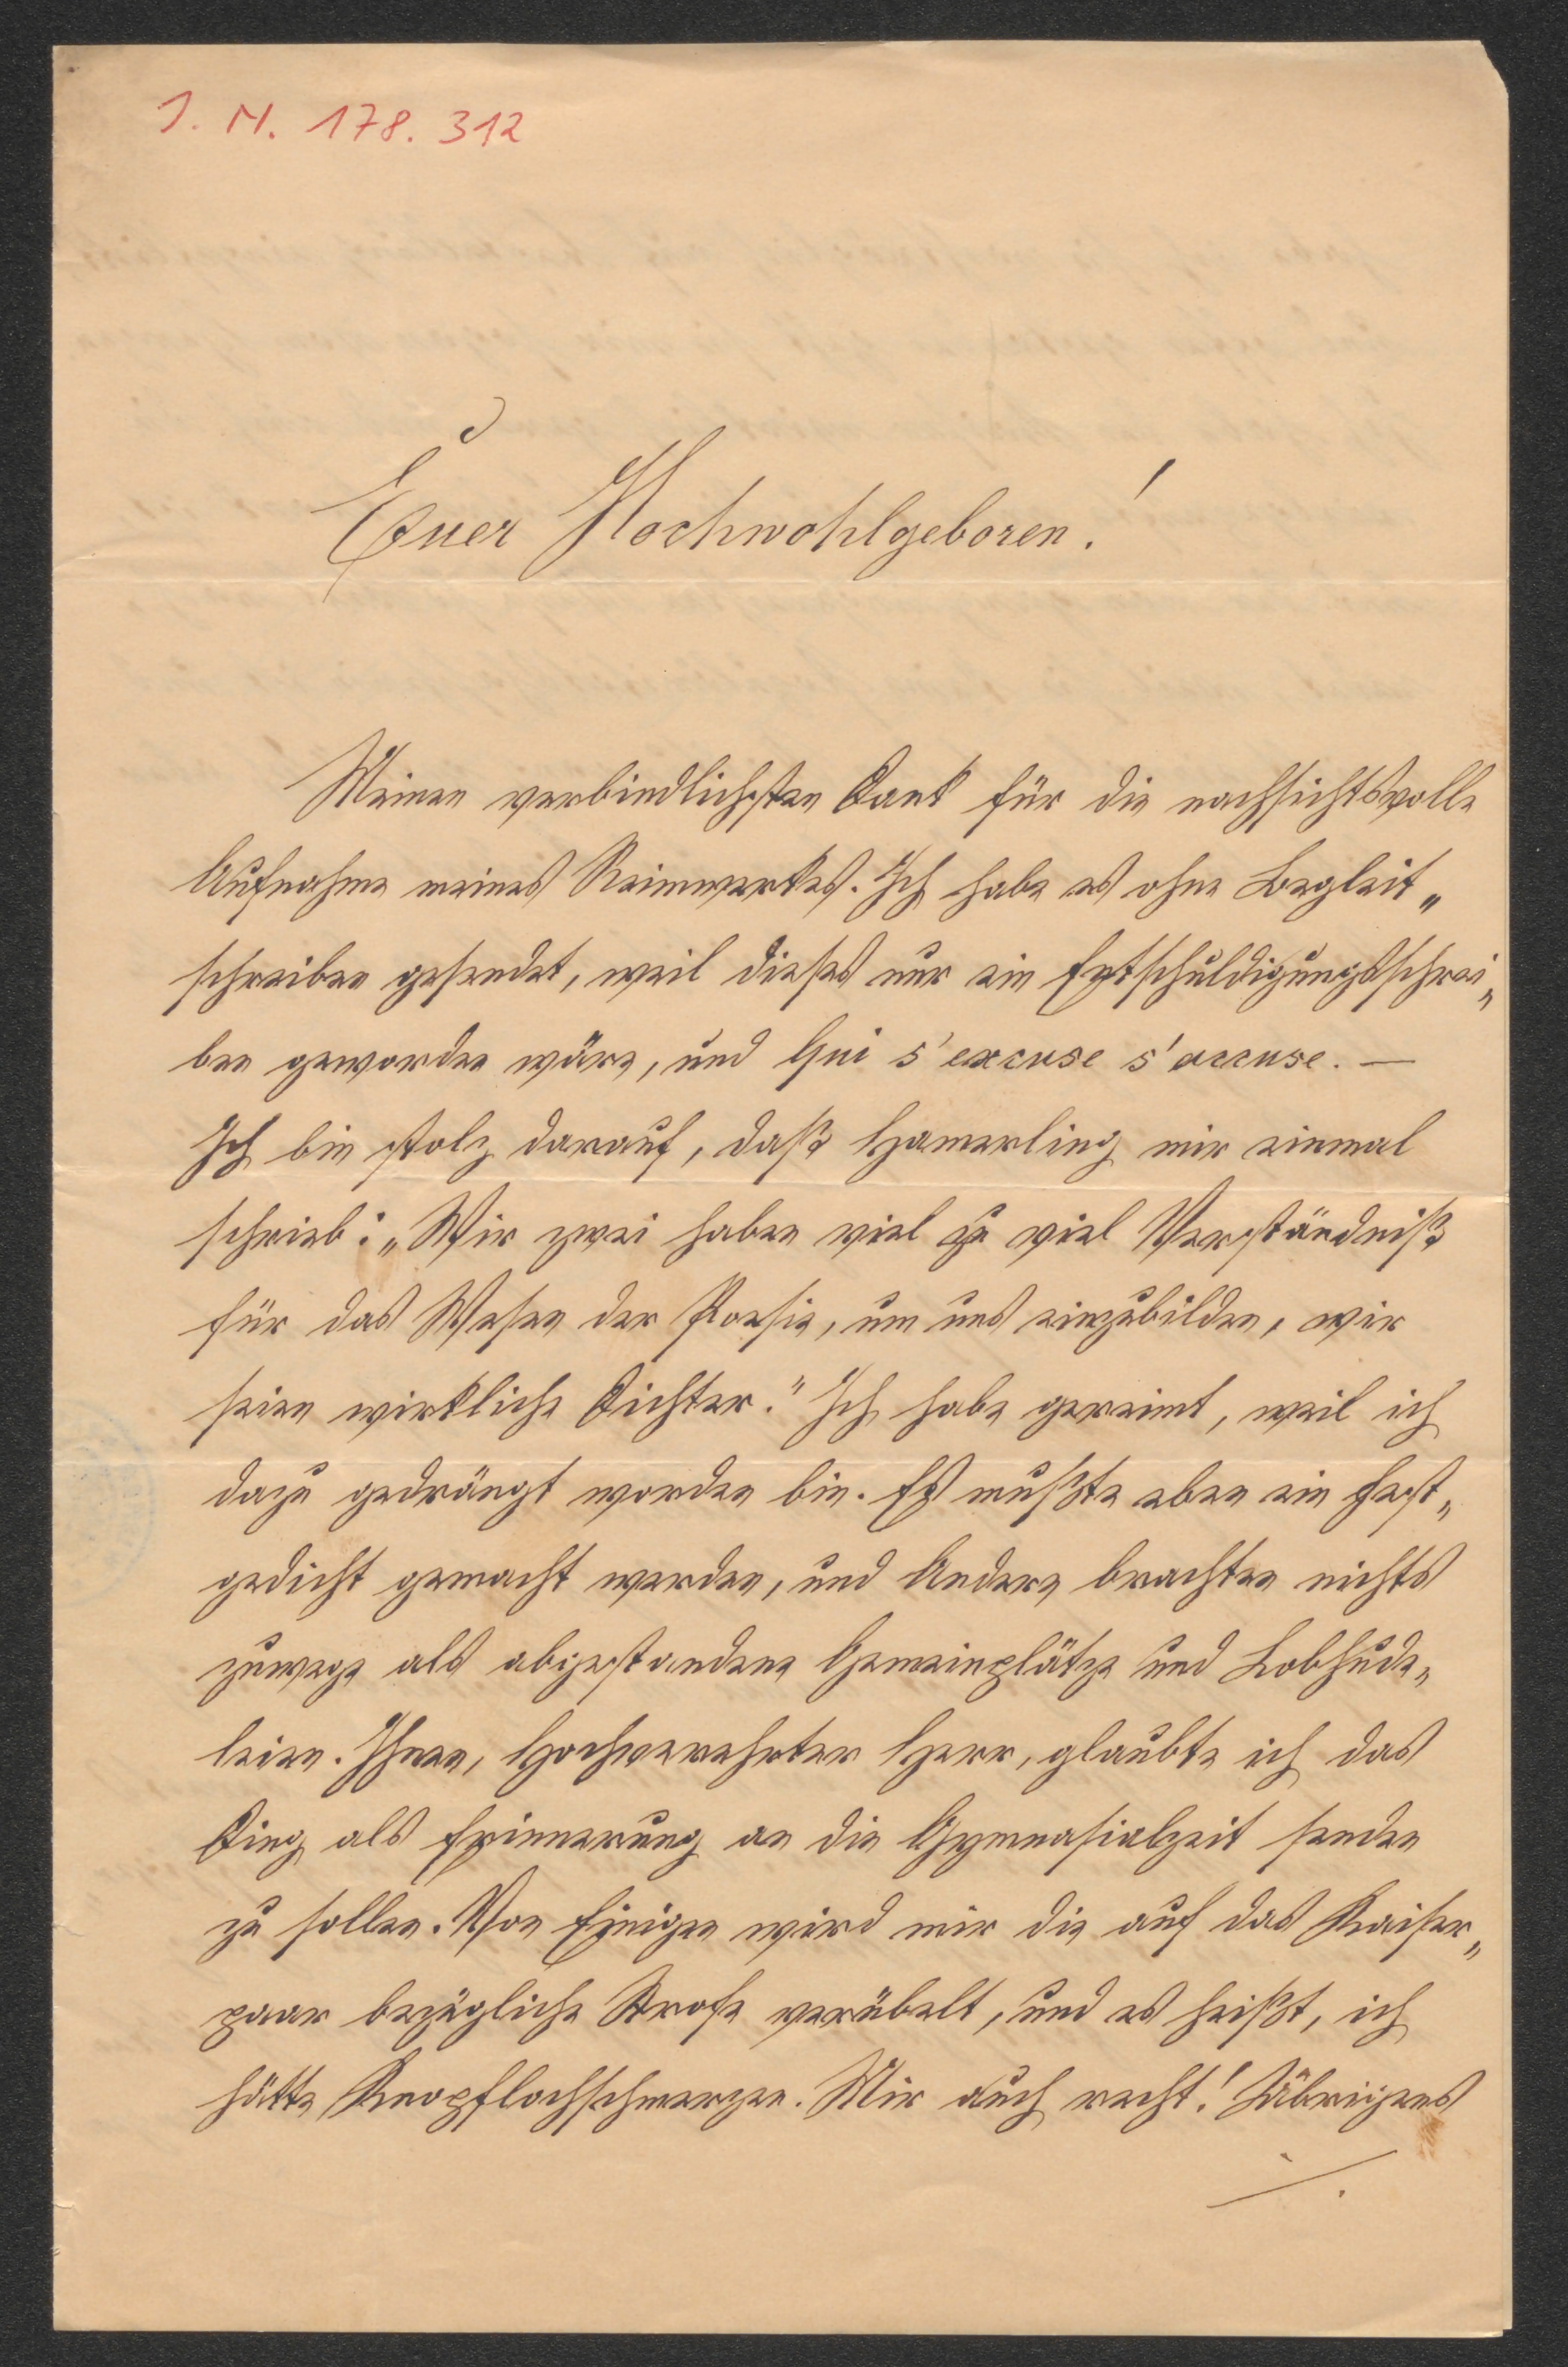 J. N. 178.312
Euer Hochwohlgeboren!
Meinen verbindlichsten Dank für die nachsichtsvolle
Aufnahme meines Reimwerkes. Ich habe es ohne Begleit„
schreiben gesendet, weil dieses nur ein Entschuldigungsschrei„
ben geworden wäre, und Qui s'excuse s'accuse. —
Ich bin stolz darauf, daß Hamerling mir einmal
schrieb: „Wir zwei haben viel zu viel Verständniß
für das Wesen der Poesie, um uns einzubilden, wir
seien wirkliche Dichter." Ich habe gereimt, weil ich
dazu gedrängt worden bin. Es mußte eben ein Fest„
gedicht gemacht werden, und Andere brachten nichts
zuwege als abgestandene Gemeinplätze und Lobhude„
leien. Ihnen, Hochverehrter Herr, glaubte ich das
Ding als Erinnerung an die Gymnasialzeit senden
zu sollen. Von Einigen wird mir die auf das Kaiser„
paar bezügliche Strofe verübelt, und es heißt, ich
hätte Knopflochschmerzen. Mir auch recht! Übrigens
./.